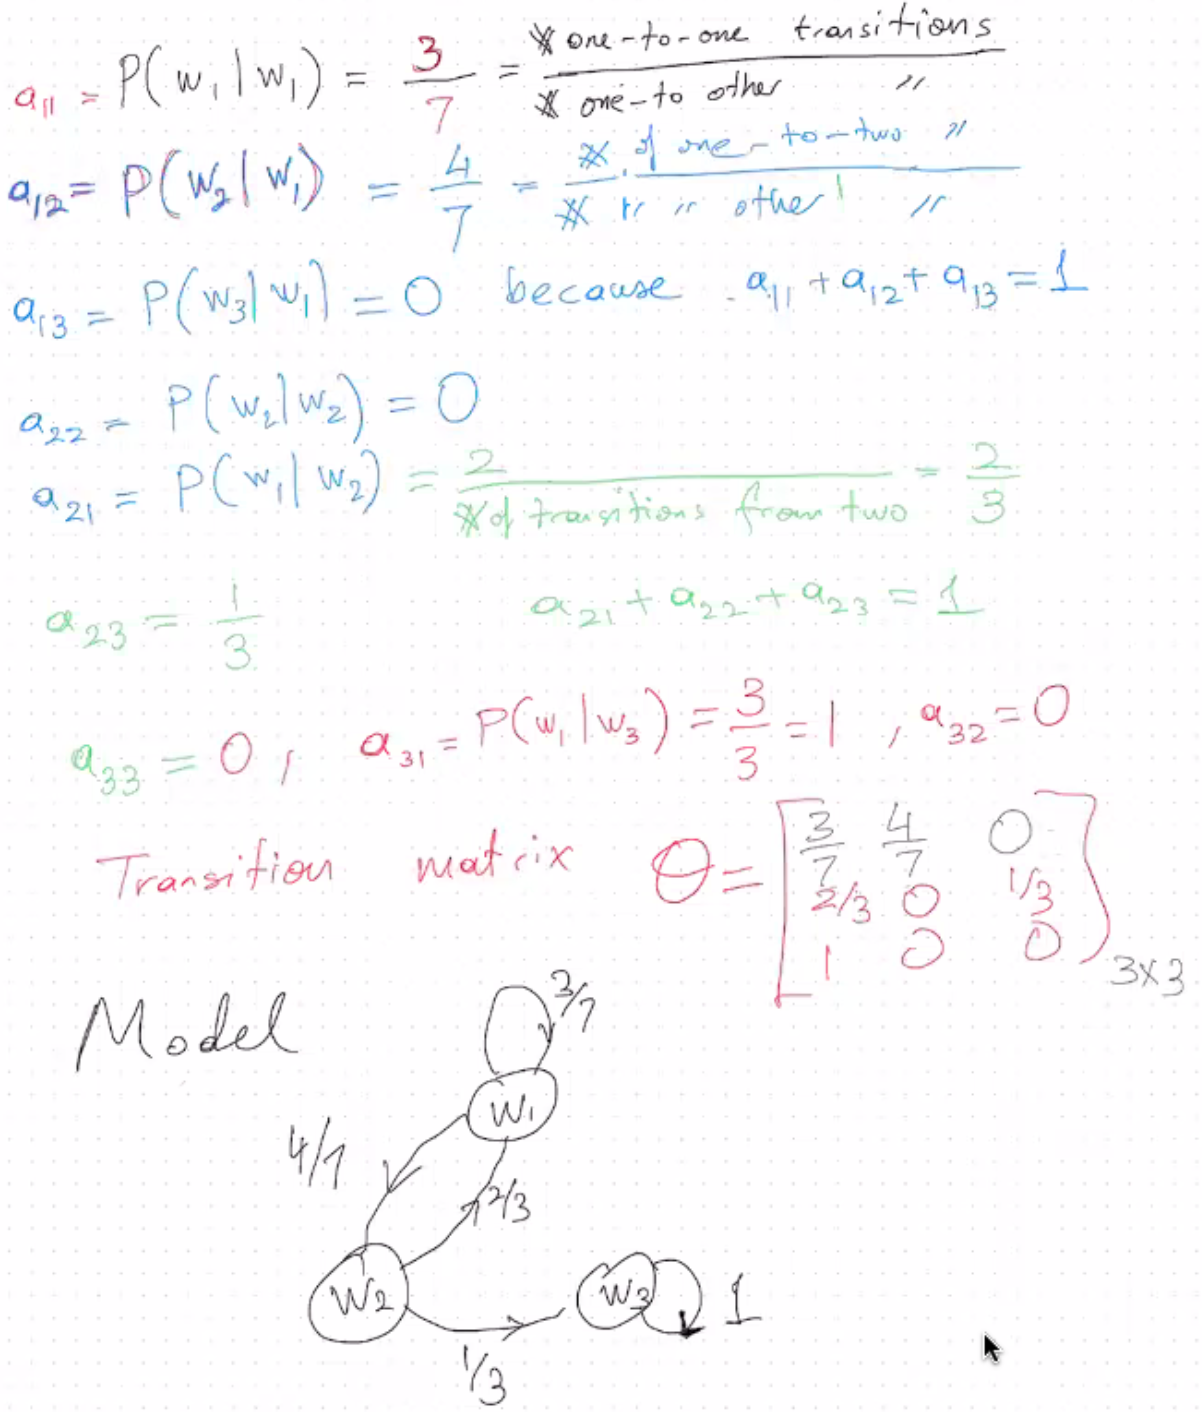 a₁₁ = P(w₁|w₁) = 3/7 = # one-to-one transitions / # one-to other "
a₁₂ = P(w₂|w₁) = 4/7 = # of one-to-two " / # " " other "
a₁₃ = P(w₃|w₁) = 0 because a₁₁ + a₁₂ + a₁₃ = 1
a₂₂ = P(w₂|w₂) = 0
a₂₁ = P(w₁|w₂) = 2 / # of transitions from two = 2/3
a₂₃ = 1/3 a₂₁ + a₂₂ + a₂₃ = 1
a₃₃ = 0, a₃₁ = P(w₁|w₃) = 3/3 = 1, a₃₂ = 0
Transition matrix Θ = [
3/7 4/7 0
2/3 0 1/3
1 0 0
] 3x3
Model
3/7
w₁
4/7
2/3
w₂
w₃
1
1/3